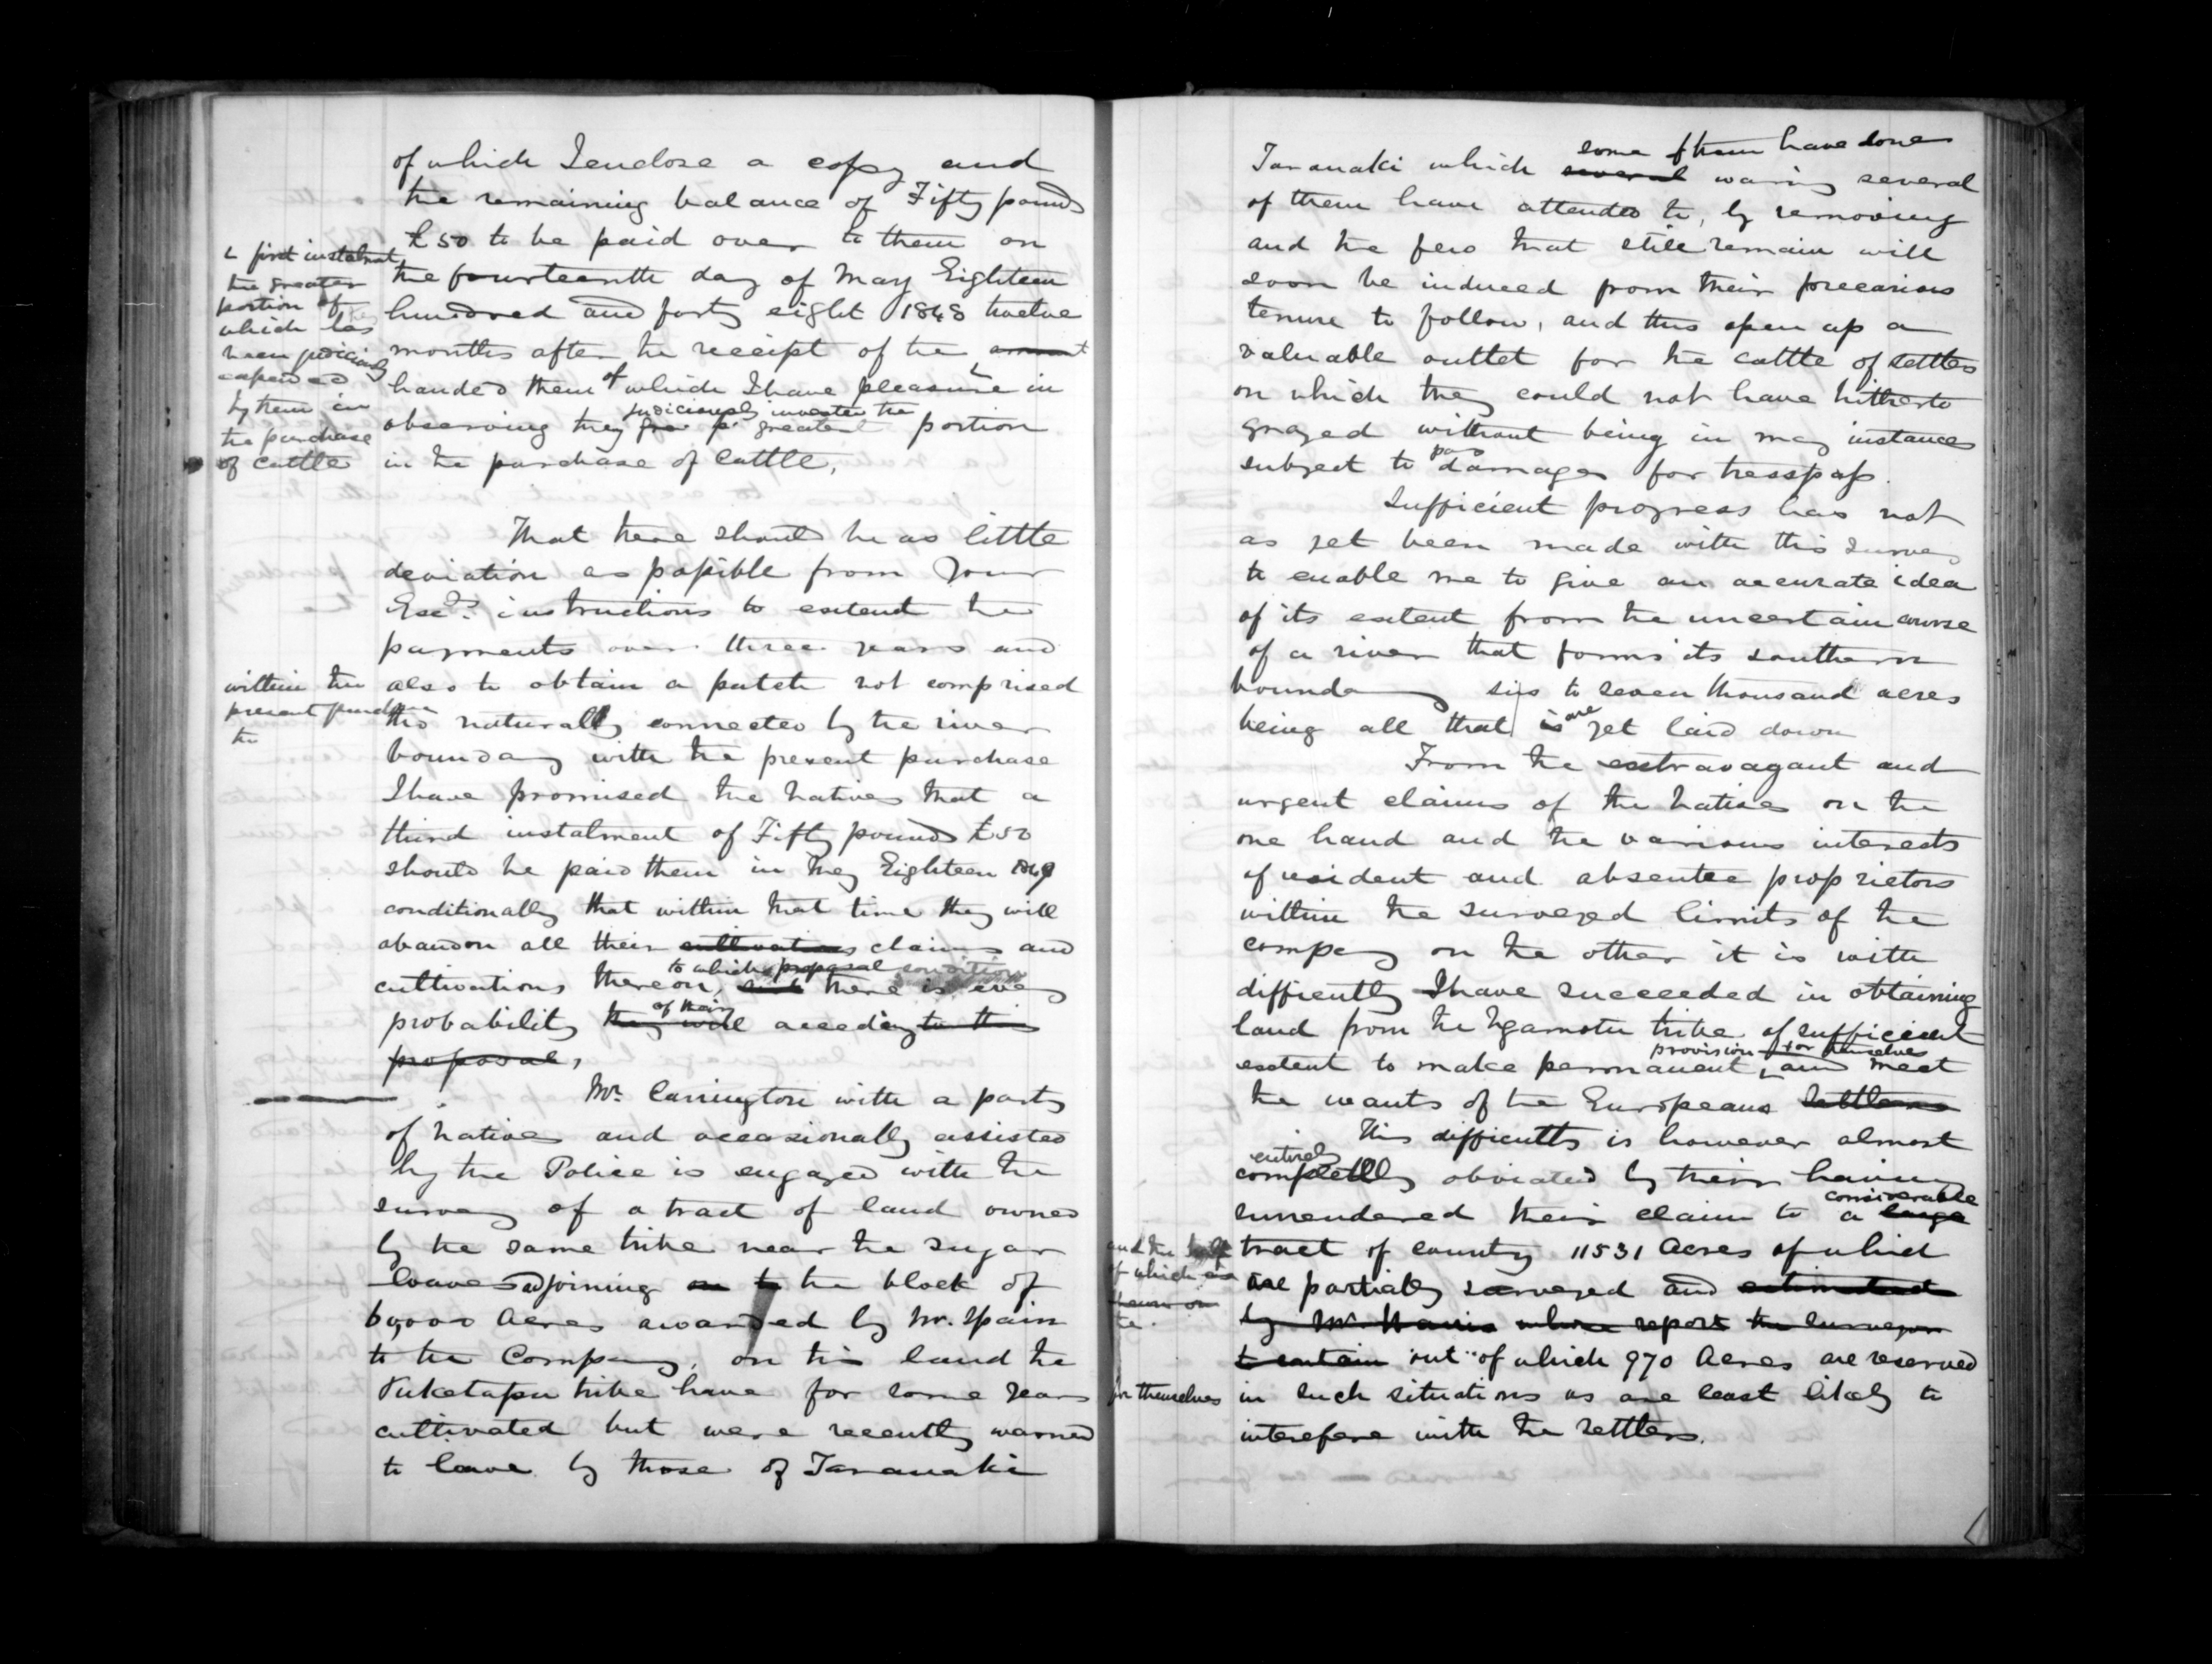 of which I enclose a copy and
the remaining balance of Fifty pounds
£50 to be paid over to them on
the fourteenth day of May Eighteen
hundred and forty eight 1848 twelve
months after the receipt of the amount
handed them of which I have pleasure in
judiciously invested the
observing they greater portion
in the purchase of Cattle,
first instalment
the greater
portion of
which has
been judiciously
expended
by them in
the purchase
of cattle
That there should be as little
deviation as possible from your
Excys. instructions to extend the
payments over three years and
also to obtain a patch not comprised
within the
present purchase
tho naturally connected by the river
boundary with the present purchase
I have promised the natives that a
third instalment of Fifty pounds £50
should be paid them in May Eighteen 1849
conditionally that within that time they will
abandon all their cultivations claims and
to which proposal condition
cultivations thereon, and there is every
of their
probability they will acceding to this
proposal,
Mr. Carrington with a party
of natives and occasionally assisted
by the Police is engaged with the
survey of a tract of land owned
by the same tribe near the Sugar
loaves adjoining on to the block of
60,000 Acres awarded by Mr. Spain
to the Company, on this land the
Puketapu tribe have for some years
cultivated but were recently warned
to leave by those of Taranaki
some of them have done
Taranaki which several waring several
of them have attended to, by removing
and the few that still remain will
soon be induced from their precarious
tenure to follow, and thus open up a
valuable outlet for the cattle of settlers
on which they could not have hitherto
grazed without being in may instances
subject to damages for tresspass.
Sufficient progress has not
as yet been made with this survey
to enable me to give an accurate idea
of its extent from the uncertain course
of a river that forms its southern
boundary six to seven thousand acres
being all that is are yet laid down
From the extravagant and
urgent claims of the natives on the
one hand and the various interests
of resident and absentee proprietors
within the surveyed limits of the
company on the other it is with
difficulty I have succeeded in obtaining
land from the Ngamotu tribe of sufficient
provision for themselves
extent to make permanent and meet
the wants of the Europeans Settlers
This difficulty is however almost
entirely
completely obviated by their having
considerable
surrendered their claim to a large
tract of country 11531 Acres of which
and the
of which are
are partially surveyed and estimated
by Mr. Harris whose report the surveyor
to contain out of which 970 Acres are reserved
for themselves in such situations as are least likely to
interefere with the settlers.